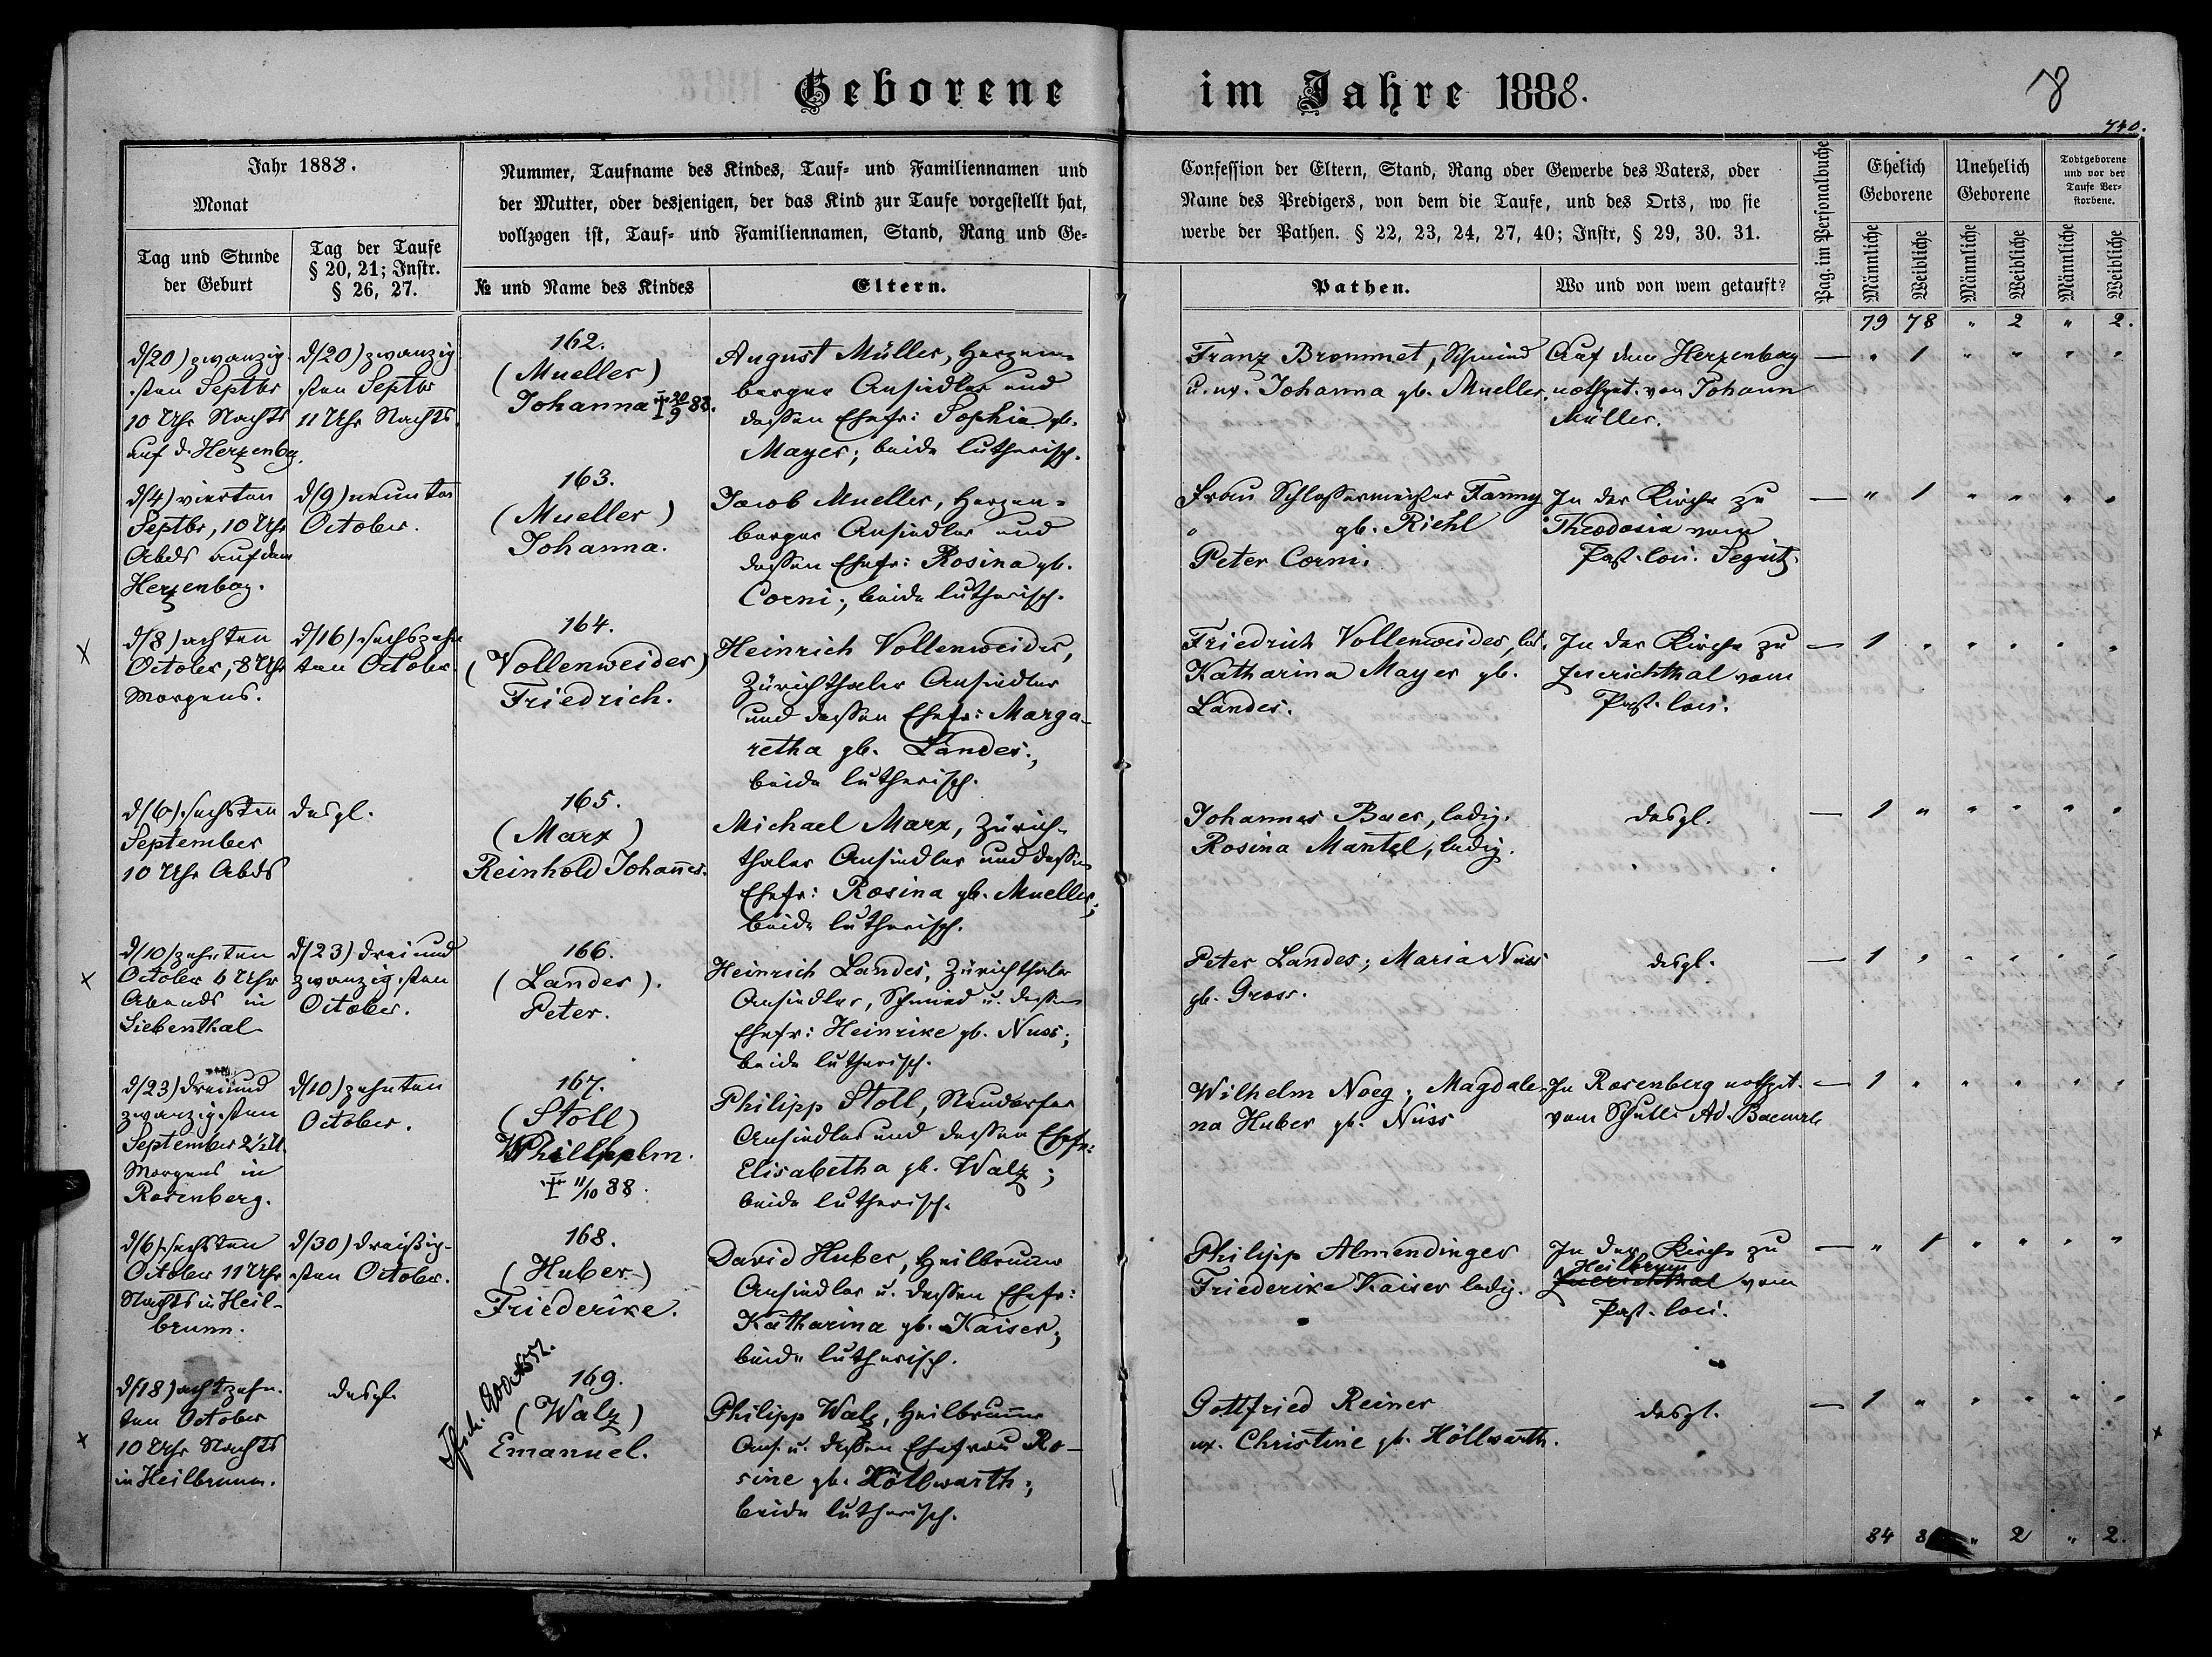 Geborene im Jahre 1888.
8
740.
Jahr 1888.
Monat
Tag und Stunde
der Geburt
Tag der Taufe
§ 20, 21; Instr.
§ 26, 27.
Nummer, Taufname des Kindes, Tauf- und Familiennamen und
der Mutter, oder desjenigen, der das Kind zur Taufe vorgestellt hat,
vollzogen ist, Tauf- und Familiennamen, Stand, Rang und Ge-
№ und Name des Kindes
Eltern.
Confession der Eltern, Stand, Rang oder Gewerbe des Vaters, oder
Name des Predigers, von dem die Taufe, und des Orts, wo sie
werbe der Pathen. § 22, 23, 24, 27, 40; Instr, § 29, 30. 31.
Pathen.
Wo und von wem getauft?
Pag. im Personalbuche
Ehelich
Geborene
Unehelich
Geborene
Todtgeborene
und vor der
Taufe Ver-
storbene.
Männliche
Weibliche
Männliche
Weibliche
Männliche
Weibliche
79 78 " 2 " 2.
d/20) zwanzig-
sten Septbr
10 Uhr Nachts
auf d. Herzenbg.
d/20) zwanzig
sten Septbr
11 Uhr Nachts.
162.
(Mueller)
Johanna † 20/9 88.
August Müller, Herzen-
berger Ansiedler und
dessen Ehefr: Sophia gb.
Mayer; beide lutherisch.
Franz Brommet, Schmied
u. ux. Johanna gb. Mueller.
Auf dem Herzenberg
nothget. von Johann
Müller.
+
— " 1 " " " "
d/4) vierten
Septbr, 10 Uhr
Abds auf dem
Herzenberg.
d/9) neunten
October.
163.
(Mueller)
Johanna.
Jacob Mueller, Herzen-
berger Ansiedler und
dessen Ehefr: Rosina gb.
Corni; beide lutherisch.
Frau Schlossermeister Fanny
" gb. Riehl
Peter Corni.
In der Kirche zu
Theodosia vom
Past. loci.
— " 1 " " " "
x
d/8) achten
October, 8 Uhr
Morgens.
d/16) sechszehn
ten October.
164.
(Vollenweider)
Friedrich.
Heinrich Vollenweider,
Zürichthaler Ansiedler
und dessen Ehefr: Marga-
retha gb. Landes;
beide lutherisch.
Friedrich Vollenweider, led.
Katharina Mayer gb.
Landes.
In der Kirche zu
Zuerichthal vom
Past. loci.
— 1 " " " " "
d/6) sechsten
September
10 Uhr Abds
desgl.
165.
(Marx)
Reinhold Johannes.
Michael Marx, Zürich-
thaler Ansiedler und dessen
Ehefr: Rosina gb. Mueller;
beide lutherisch.
Johannes Baer, ledig.
Rosina Mantel, ledig.
desgl.
— 1 " " " " "
x
d/10) zehnten
October 6 Uhr
Abends in
Liebenthal
d/23) drei und
zwanzigsten
October.
166.
(Landes).
Peter.
Heinrich Landes, Zürichthaler
Ansiedler, Schmied u. dessen
Ehefr: Heinrike gb. Nuss;
beide lutherisch.
Peter Landes; Maria Nuss
gb. Gross.
desgl.
— 1 " " " " "
d/23) drei und
zwanzigsten
September 2½ U.
Morgens in
Rosenberg.
d/10) zehnten
October.
167.
(Stoll)
† 11/10 88.
Philipp Stoll, Neudorfer
Ansiedler und dessen Ehefr:
Elisabetha gb. Walz;
beide lutherisch.
Wilhelm Noeg; Magdale-
na Huber gb. Nuss
In Rosenberg nothget.
vom Schull. Ad. Baeuerle
— 1 " " " " "
d/6) sechsten
October 11 Uhr
Nachts in Heil-
brunn.
d/30) dreißig-
sten October.
168.
(Huber)
Friederike.
David Huber, Heilbrunner
Ansiedler u. dessen Ehefr:
Katharina gb. Kaiser;
beide lutherisch.
Philipp Almendinger
Friederike Kaiser ledig.
In der Kirche zu
Heilbrunn
Zuerichthal vom
Past. loci.
— " 1 " " " "
x
d/18) achtzehn-
ten October
10 Uhr Nachts
in Heilbrunn.
desgl.
169.
(Walz)
Emanuel.
Philipp Walz, Heilbrunner
Ans. u. dessen Ehefrau Ro-
sine gb. Höllwarth;
beide lutherisch.
Gottfried Reiner
ux. Christine gb. Höllwarth.
desgl.
— 1 " " " " "
x
84 8 " 2 " 2.